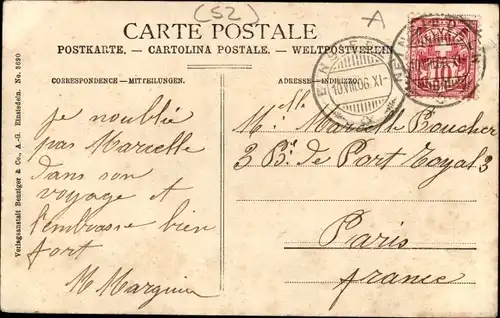 (52)
A
CARTE POSTALE
POSTKARTE. — CARTOLINA POSTALE. — WELTPOSTVEREIN
CORRESPONDENCE — MITTEILUNGEN.
ADRESSE — INDIRIZZO:
10.VIII.06.XI-
10
Verlagsanstalt Benziger & Co., A.-G. Einsiedeln. No. 3690
je n'oublie
pas Marcelle
dans son
voyage et
l'embrasse bien
fort
M Marguin
Melle Marcelle Boucher
3 Bd. de Port Royal 3
Paris
france